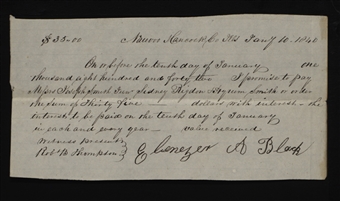 $35=00 Nauvoo Hancock Co Ills Jany 10. 1840
On or before the tenth day of January one
thousand eight hundred and forty I promise to pay
Messrs Joseph Smith Junr Sidney Rigdon Hyrum Smith or order
the sum of Thirty five dollars with interest the
interest to be paid on the tenth day of January
in each and every year value received
Witness Present
Robt B Thompson } Ebenezer Black